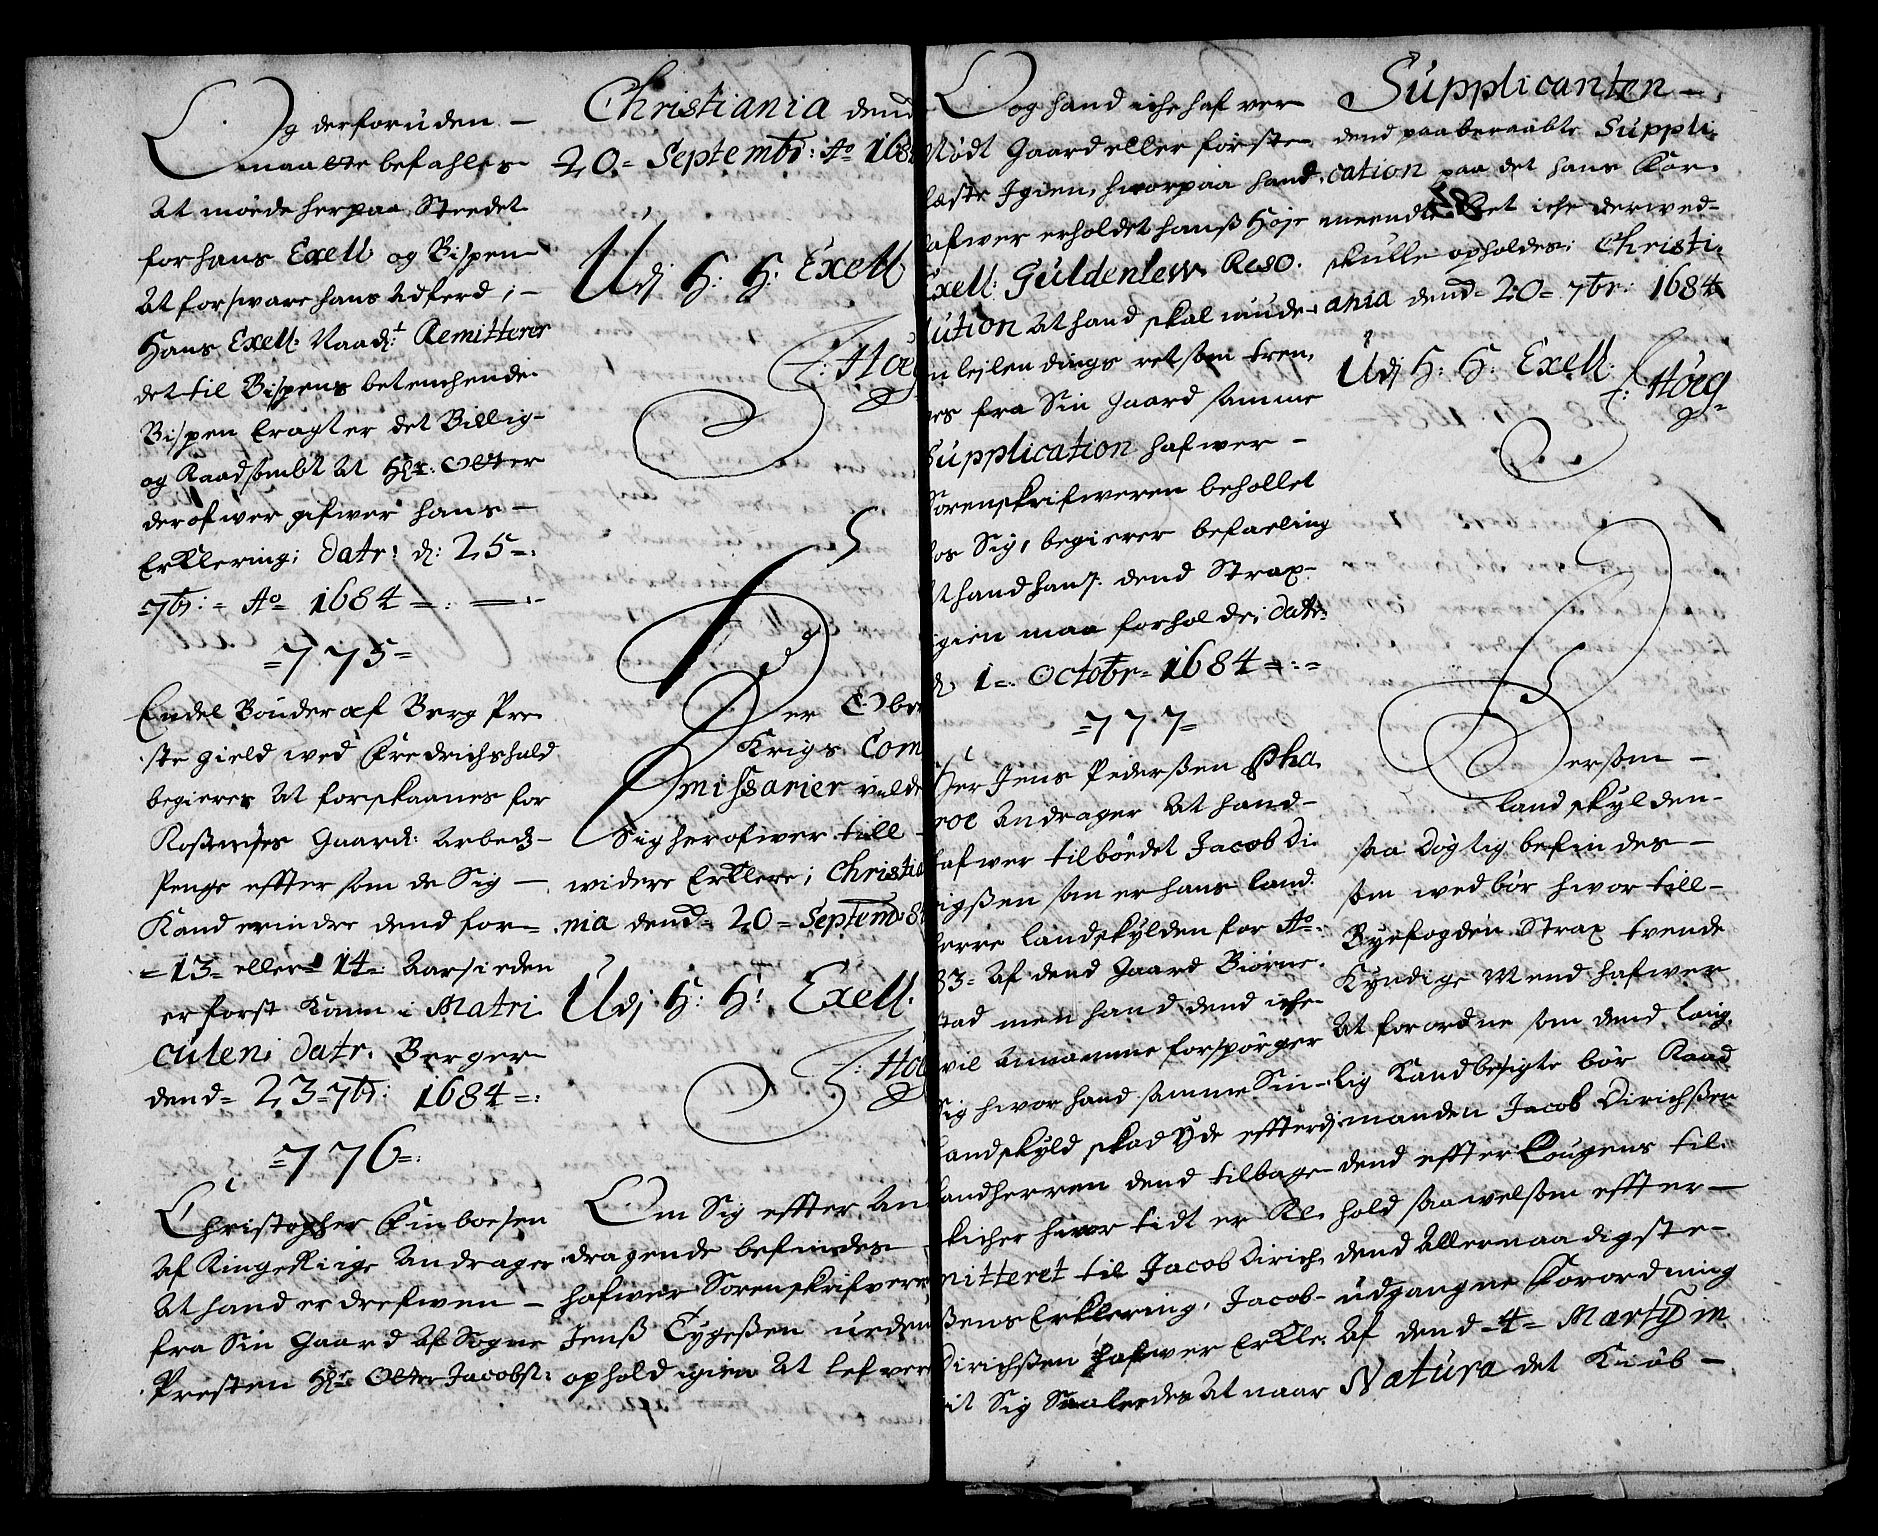 Og derforuden –
maatte befahles
At möede herpaa Steedet
for hans Exell: og Bispen
At forsware hans Adferd; –
Hans Exell: Naad: Remitterer
det til Bispens betenchende
Bispen Eragter det Billig
og Raadsombt At Hr: Otter
derofwer gifwer hans –
Erklering; Datr: d: 25 –:
7br: = Ao 1684 =: =:–
=775=
Endel Bönder af Berg Pre
ste gield wed Fredrichshald
begierer At forskaanes for
Gaard: Arbeds
Penge effter som de Sig –
Kand erindre dend for=
=13= eller 14= Aar sieden
er först Kom i Matri
culen; Datr. Berger
dend= 23=7br: 1684=:
=776=:
Christopher Finboesen
Af Ringe Riige Andrager
At hand er drefwen –
fra Sin Gaard Af Sogne
Presten Hr: Otter Jacobs:
Christiania dend
20= Septembr: Ao 168
Udj H: H: Exell
F: Höeg
Der Ober
Krigs Com
missarier wilde
Sig herofwer till –
widere Erklere; Christia
nia dend= 20= Septemb: 8
Udj H: H: Exell.
F: Höe
Om Sig effter An
dragende befindes
hafwer Sorenskrifwere
Jenß Tygeßen uden
ophold igien At lefwere
Og hand iche hafwer
Mödt Gaard eller förste
læste Igien, hworpaa hand
hafwer erholdet hanß Höje
Exell: Güldenlew Reso.
lution At hand skal niude
en leylendings ret som tren,
ges fra Sin Gaard samme
Supplication hafwer –
Sorenskrifweren behollet
hos Sig, begierer befaeling
At hand hans: dend Strax
igien maa forholde; Datr.
d: 1= Octobr= 1684=:=
=777=
Her Jens Pederßen Pha
roe Andrager At hand –
hafwer tilböedet Jacob Di
rigßen som er hans land
herre landskylden for Ao:
83= Af dend Gaard Biörne
stad men hand dend iche
wil Annamme forspörger
Sig hwor hand samme Sin
Landskyld skad Yde efterdj
Landherren dend tilbage
skicher hwor tidt er Re
mitteret til Jacob Dirich
ßens Erklering, Jacob
Dirichßen hafwer Erkle
rit Sig Saaledes At naar
Supplicanten –
dend paaberaabte Suppli
cation paa det hans For
meendte Ret iche derwed
skulle opholdes; Christi
ania dend= 20= 7br: 1684
Udj H: H: Exell:
F: Höeg
Dersom –
landskylden
saa dögtig befindes –
som wedbör hwor till –
Byefogden Strax trende
Kyndige Mend hafwer
At forordne som dend lowg
lig Kand besigte bör Raad
manden Jacob Dirichßen
dend effter Lougens til
hold saawelsom effter –
dend Allernaadigste –
udgangne Forordning
Af dend 4= Martij in
Natura det Kiöb –